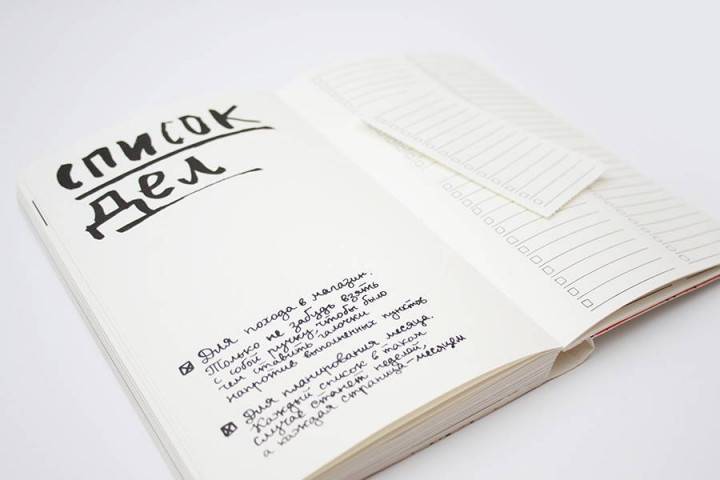 СПИСОК
Дел
Для похода в магазин.
Только не забудь взять
с собой ручку, чтобы было
чем ставить галочки
напротив выполненных пунктов
Для планирования месяца.
Каждый список в таком
случае станет неделей,
а каждая страница - месяцем